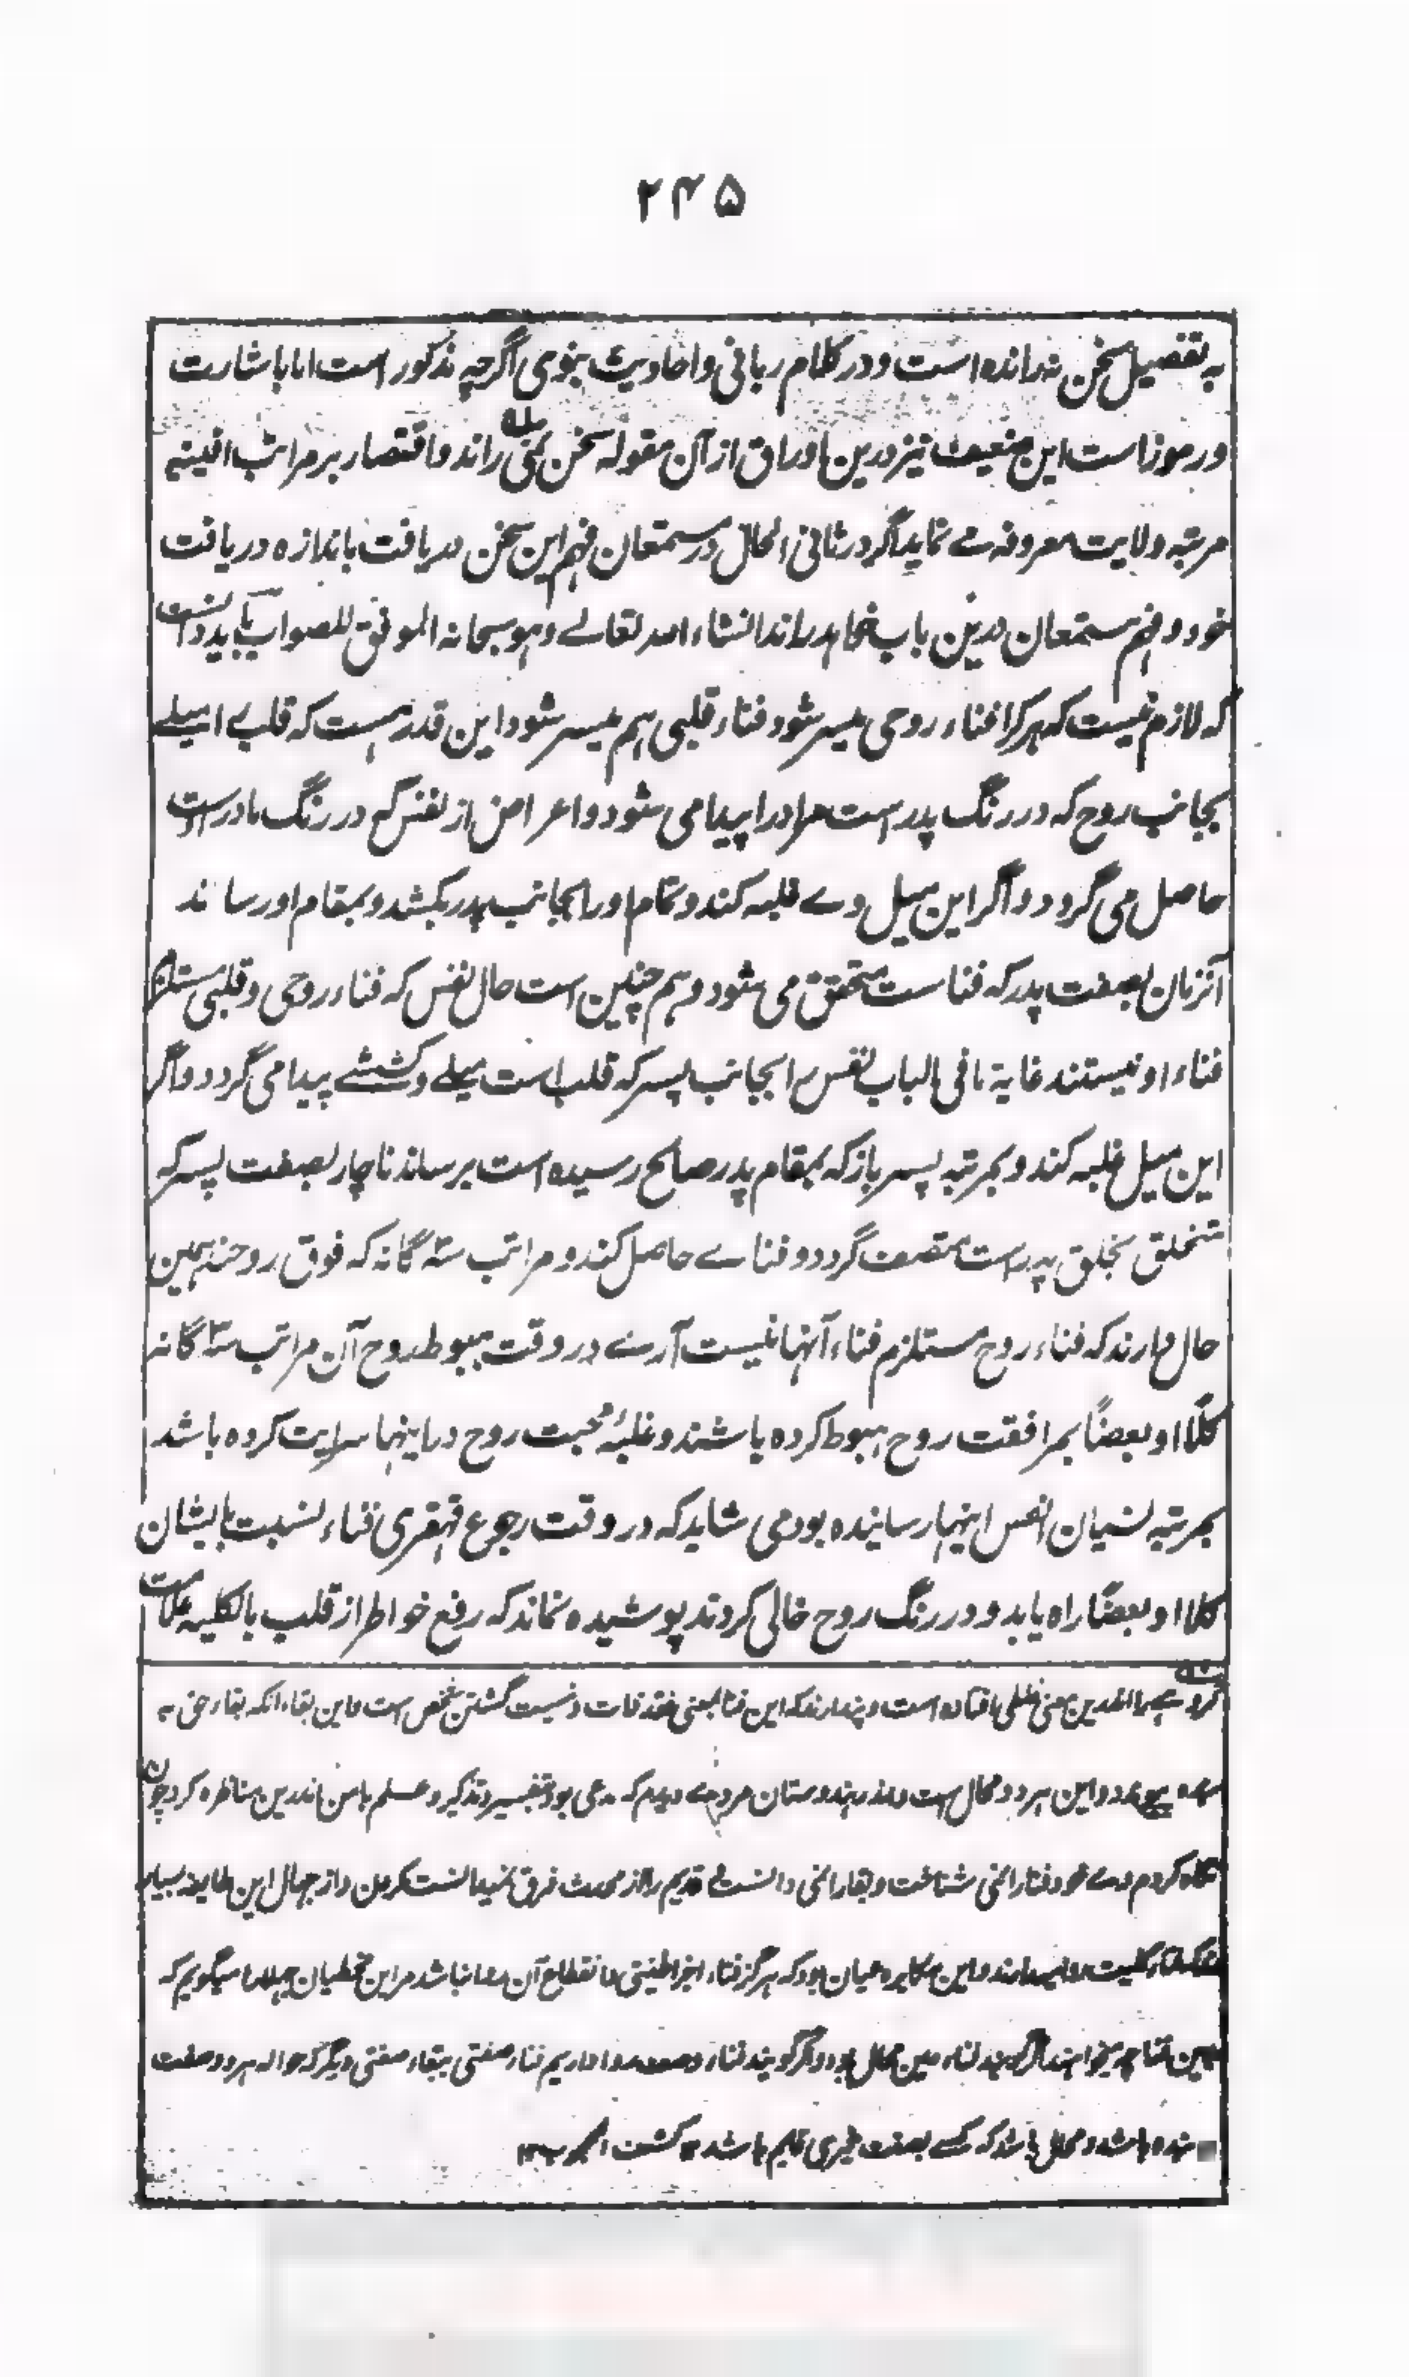 ۲۴۵
به تفصیل سخن نرانده است و در کلام ربانی و احادیث نبوی اگرچه مذکور است اما باشارت
و رموز است این ضعیف نیز درین اوراق از آن مقوله سخن نمی راند و اقتصار بر مراتب
مرتبه ولایت معروفه می نماید اگر در ثانی الحال در مستمعان فهم این سخن دریافت باندازه دریافت
خود و فهم مستمعان درین باب خواهد راند انشاء الله تعالے وهو سبحانه الموفق للصواب باید دانست
که لازم نیست که هر کرا فناء روحی میسر شود فناء قلبی هم میسر شود این قدر هست که قلب را میلے
بجانب روح که در رنگ پدر است مر او را پیدا می شود و اعراض از نفس که در رنگ مادر است
حاصل می گردد و اگر این میل وے غلبه کند و تمام او را بجانب پدر بکشد و بمقام او رساند
آنزمان بصفت پدر که فناست متحقق می شود و هم چنین است حال نفس که فناء روحی و قلبی مستلزم
فناء او نیستند غایة ما فی الباب نفس را بجانب پسر که قلب است میلے و کششے پیدا می گردد و اگر
این میل غلبه کند و بمرتبه پسر باز که بمقام پدر صالح رسیده است برساند ناچار بصفت پسر که
متخلق بخلق پدر است متصف گردد و فناے حاصل کند و مراتب سه گانه که فوق روحند همین
حال دارند که فناء روح مستلزم فناء آنها نیست آرے در وقت هبوط روح آن مراتب سه گانه
کلًا او بعضًا بمرافقت روح هبوط کرده باشند و غلبهٔ محبت روح در اینها سرایت کرده باشد
بمرتبه نسیان انفس اینها رسانیده بود می شاید که در وقت رجوع قهقری فناء نسبت بایشان
کلا او بعضًا راه یابد و در رنگ روح خالی گردند پوشیده نماند که رفع خواطر از قلب بالکلیه علامت
گروهے را اندرین معنی غلطی افتاده است و پندارند که این فنا بمعنی فقد ذات و نیست گشتن شخص است و این بقا آنکه بقاء حق به
بنده پیوندد و این هر دو محال است و اندر هندوستان مردے دیدم که مدعی بود بتفسیر و تذکیر و علم با من اندرین مناظره کرد چون
نگاه کردم وے خود فنا را نمی شناخت و بقا را نمی دانست و قدیم را از محدث فرق نمیدانست کردن و از جهال این طایفه بسیار
فناء کلیت روا میدارند و این مکابره عیان بود که هرگز فناء اجزا طینتی و انقطاع آن روا نباشد مر این مخطیان جهال را میگویم که
بدین فنا چه میخواهید اگر گویند فناء عین محال بود و اگر گویند فناء وصف روا داریم فناء صفتی ببقاء صفتی دیگر که حواله هر دو صفت
به بنده باشد و محال باشد که کسے بصفت غیری قایم باشد ۱۲ کشف المحجوب ۱۲